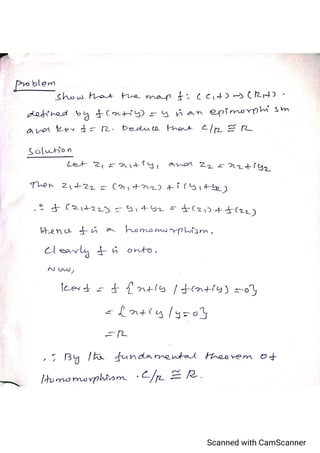 Problem
Show that the map f: (C,+) → (R,+).
defined by f(x+iy) = y is an epimorphism
and ker f = R. Deduce that C/R ≅ R
Solution
Let z₁ = x₁+iy₁ and z₂ = x₂+iy₂
Then z₁+z₂ = (x₁+x₂)+i(y₁+y₂)
∴ f(z₁+z₂) = y₁+y₂ = f(z₁)+f(z₂)
Hence f is a homomorphism.
Clearly f is onto.
Now,
ker f = f {x+iy / f(x+iy) = 0}
= {x+iy / y=0}
= R
∴ By the fundamental theorem of
Homomorphism. C/R ≅ R.
Scanned with CamScanner